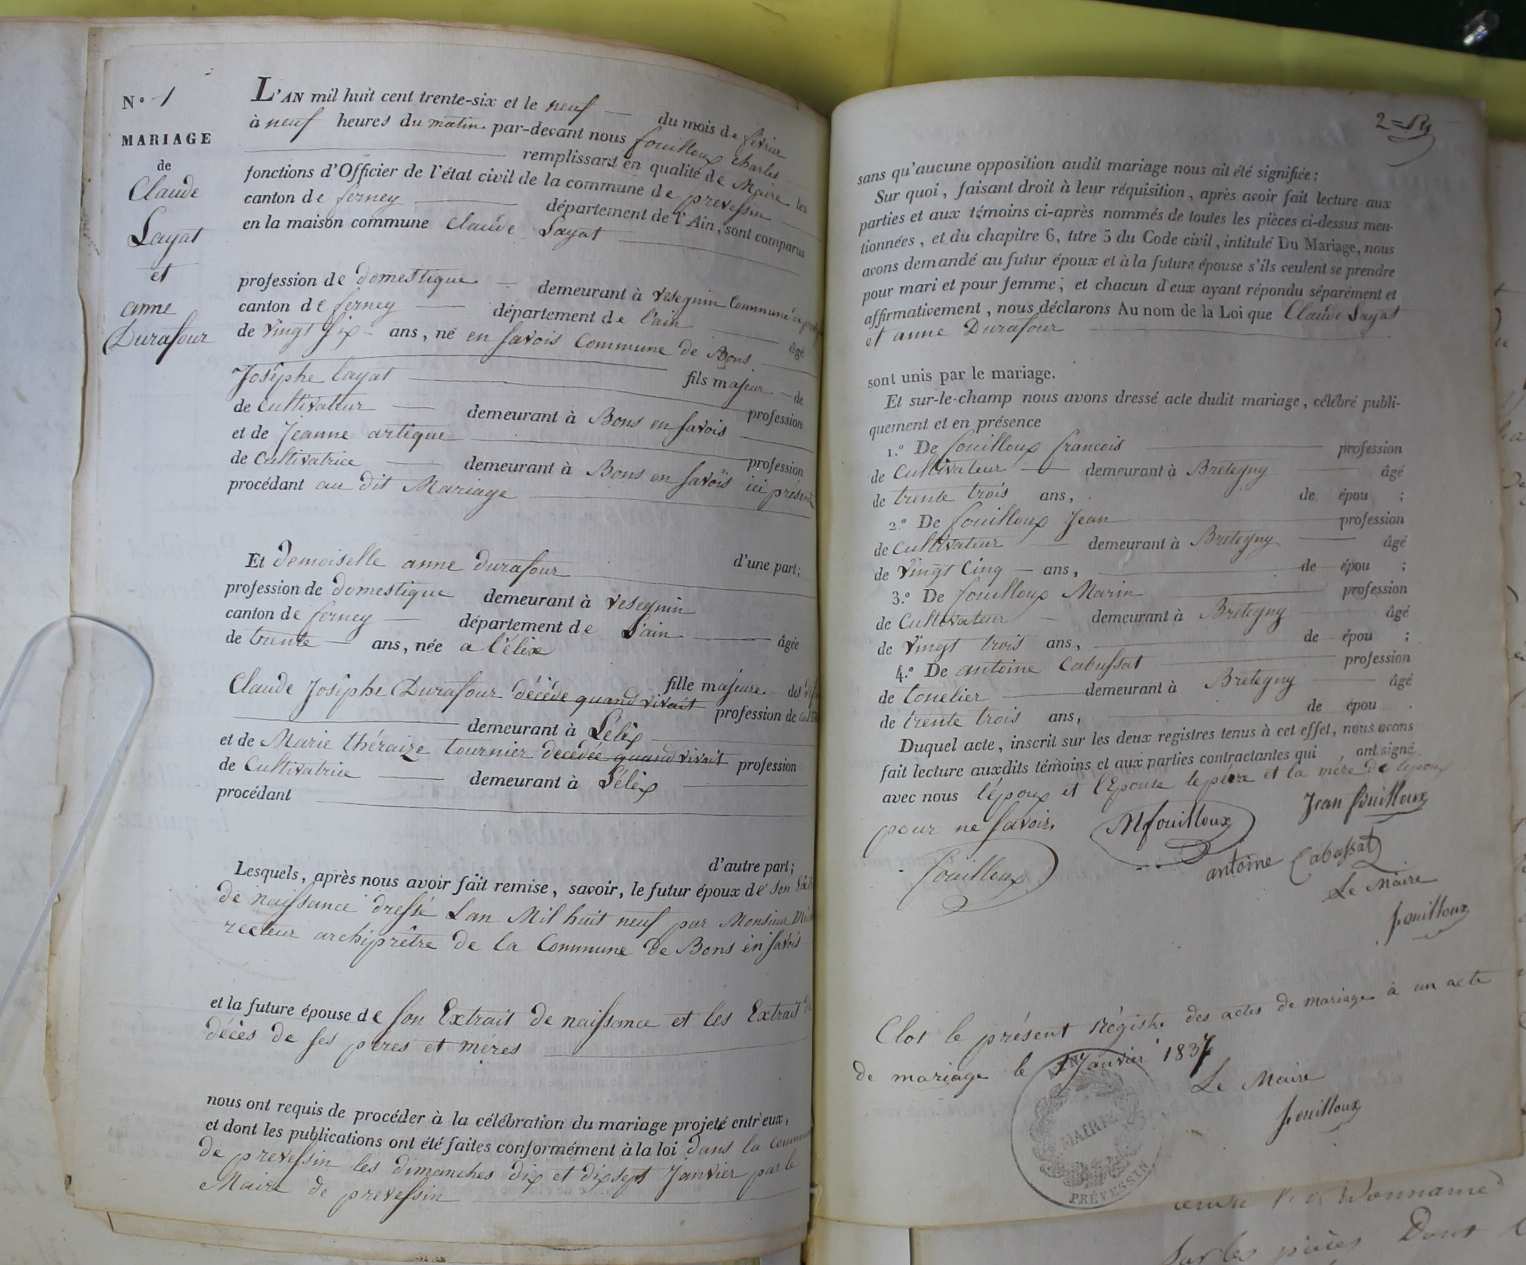 N.º 1
MARIAGE
de
Claude
Layat
et
anne
Durafour
L'AN mil huit cent trente-six et le neuf du mois de fevrier
à neuf heures du matin par-devant nous fouilloux Charles
remplissant en qualité de Maire les
fonctions d'Officier de l'état civil de la commune de prevessin
canton de ferney département de l'Ain, sont comparus
en la maison commune Claude Layat
profession de domestique demeurant à vesegnin Commune de
canton de ferney département de l'ain âgé
de vingt six ans, né en savois Commune de Bons
fils majeur de
Josèphe layat profession
de Cultivateur demeurant à Bons en savois
et de Jeanne artique profession
de Cultivatrice demeurant à Bons en savois ici présent
procédant au dit Mariage
d'une part;
Et demoiselle anne durafour
profession de domestique demeurant à vesegnin
canton de ferney département de l'ain âgée
de trente ans, née a lélex
fille majeure des
Claude Josèphe Durafour décédé quand vivait profession de
demeurant à Lélex
et de Marie théraize tournier decedée quand vivait profession
de Cultivatrice demeurant à Lélex
procédant
d'autre part;
Lesquels, après nous avoir fait remise, savoir, le futur époux de son
de naissance dressé Lan Mil huit neuf par Monsieur
recteur archiprêtre de la Commune de Bons en savois
et la future épouse de son Extrait de naissance et les Extrait de
décès de ses peres et meres
nous ont requis de procéder à la célébration du mariage projeté entr'eux,
et dont les publications ont été faites conformément à la loi dans la commune
de prevessin les dimanches dix et dixsept Janvier par le
Maire de prevessin
sans qu'aucune opposition audit mariage nous ait été signifiée;
Sur quoi, faisant droit à leur réquisition, après avoir fait lecture aux
parties et aux témoins ci-après nommés de toutes les pièces ci-dessus men-
tionnées, et du chapitre 6, titre 5 du Code civil, intitulé Du Mariage, nous
avons demandé au futur époux et à la future épouse s'ils veulent se prendre
pour mari et pour femme; et chacun d'eux ayant répondu séparément et
affirmativement, nous déclarons Au nom de la Loi que Claude Layat
et anne Durafour
sont unis par le mariage.
Et sur-le-champ nous avons dressé acte dudit mariage, célébré publi-
quement et en présence
1.º De fouilloux francois profession
de Cultivateur demeurant à Bretegny âgé
de trente trois ans, de épou ;
2.º De fouilloux Jean profession
de Cultivateur demeurant à Bretegny âgé
de vingt Cinq ans, de épou ;
3.º De fouilloux Marin profession
de Cultivateur demeurant à Bretegny âgé
de vingt trois ans, de épou ;
4.º De antoine Cabussat profession
de tonelier demeurant à Bretegny âgé
de trente trois ans, de épou .
Duquel acte, inscrit sur les deux registres tenus à cet effet, nous avons
fait lecture auxdits témoins et aux parties contractantes qui ont signé
avec nous l'époux et l'Epouse le père et la mére de lepoux
pour ne savoir. Mfouilloux Jean fouilloux
fouilloux antoine Cabussat
Le Maire
fouilloux
Clot le présent Régistre des actes de mariage à un acte
de mariage le 1 Janvier 1837
Le Maire
fouilloux
MAIRIE
PRÉVESSIN